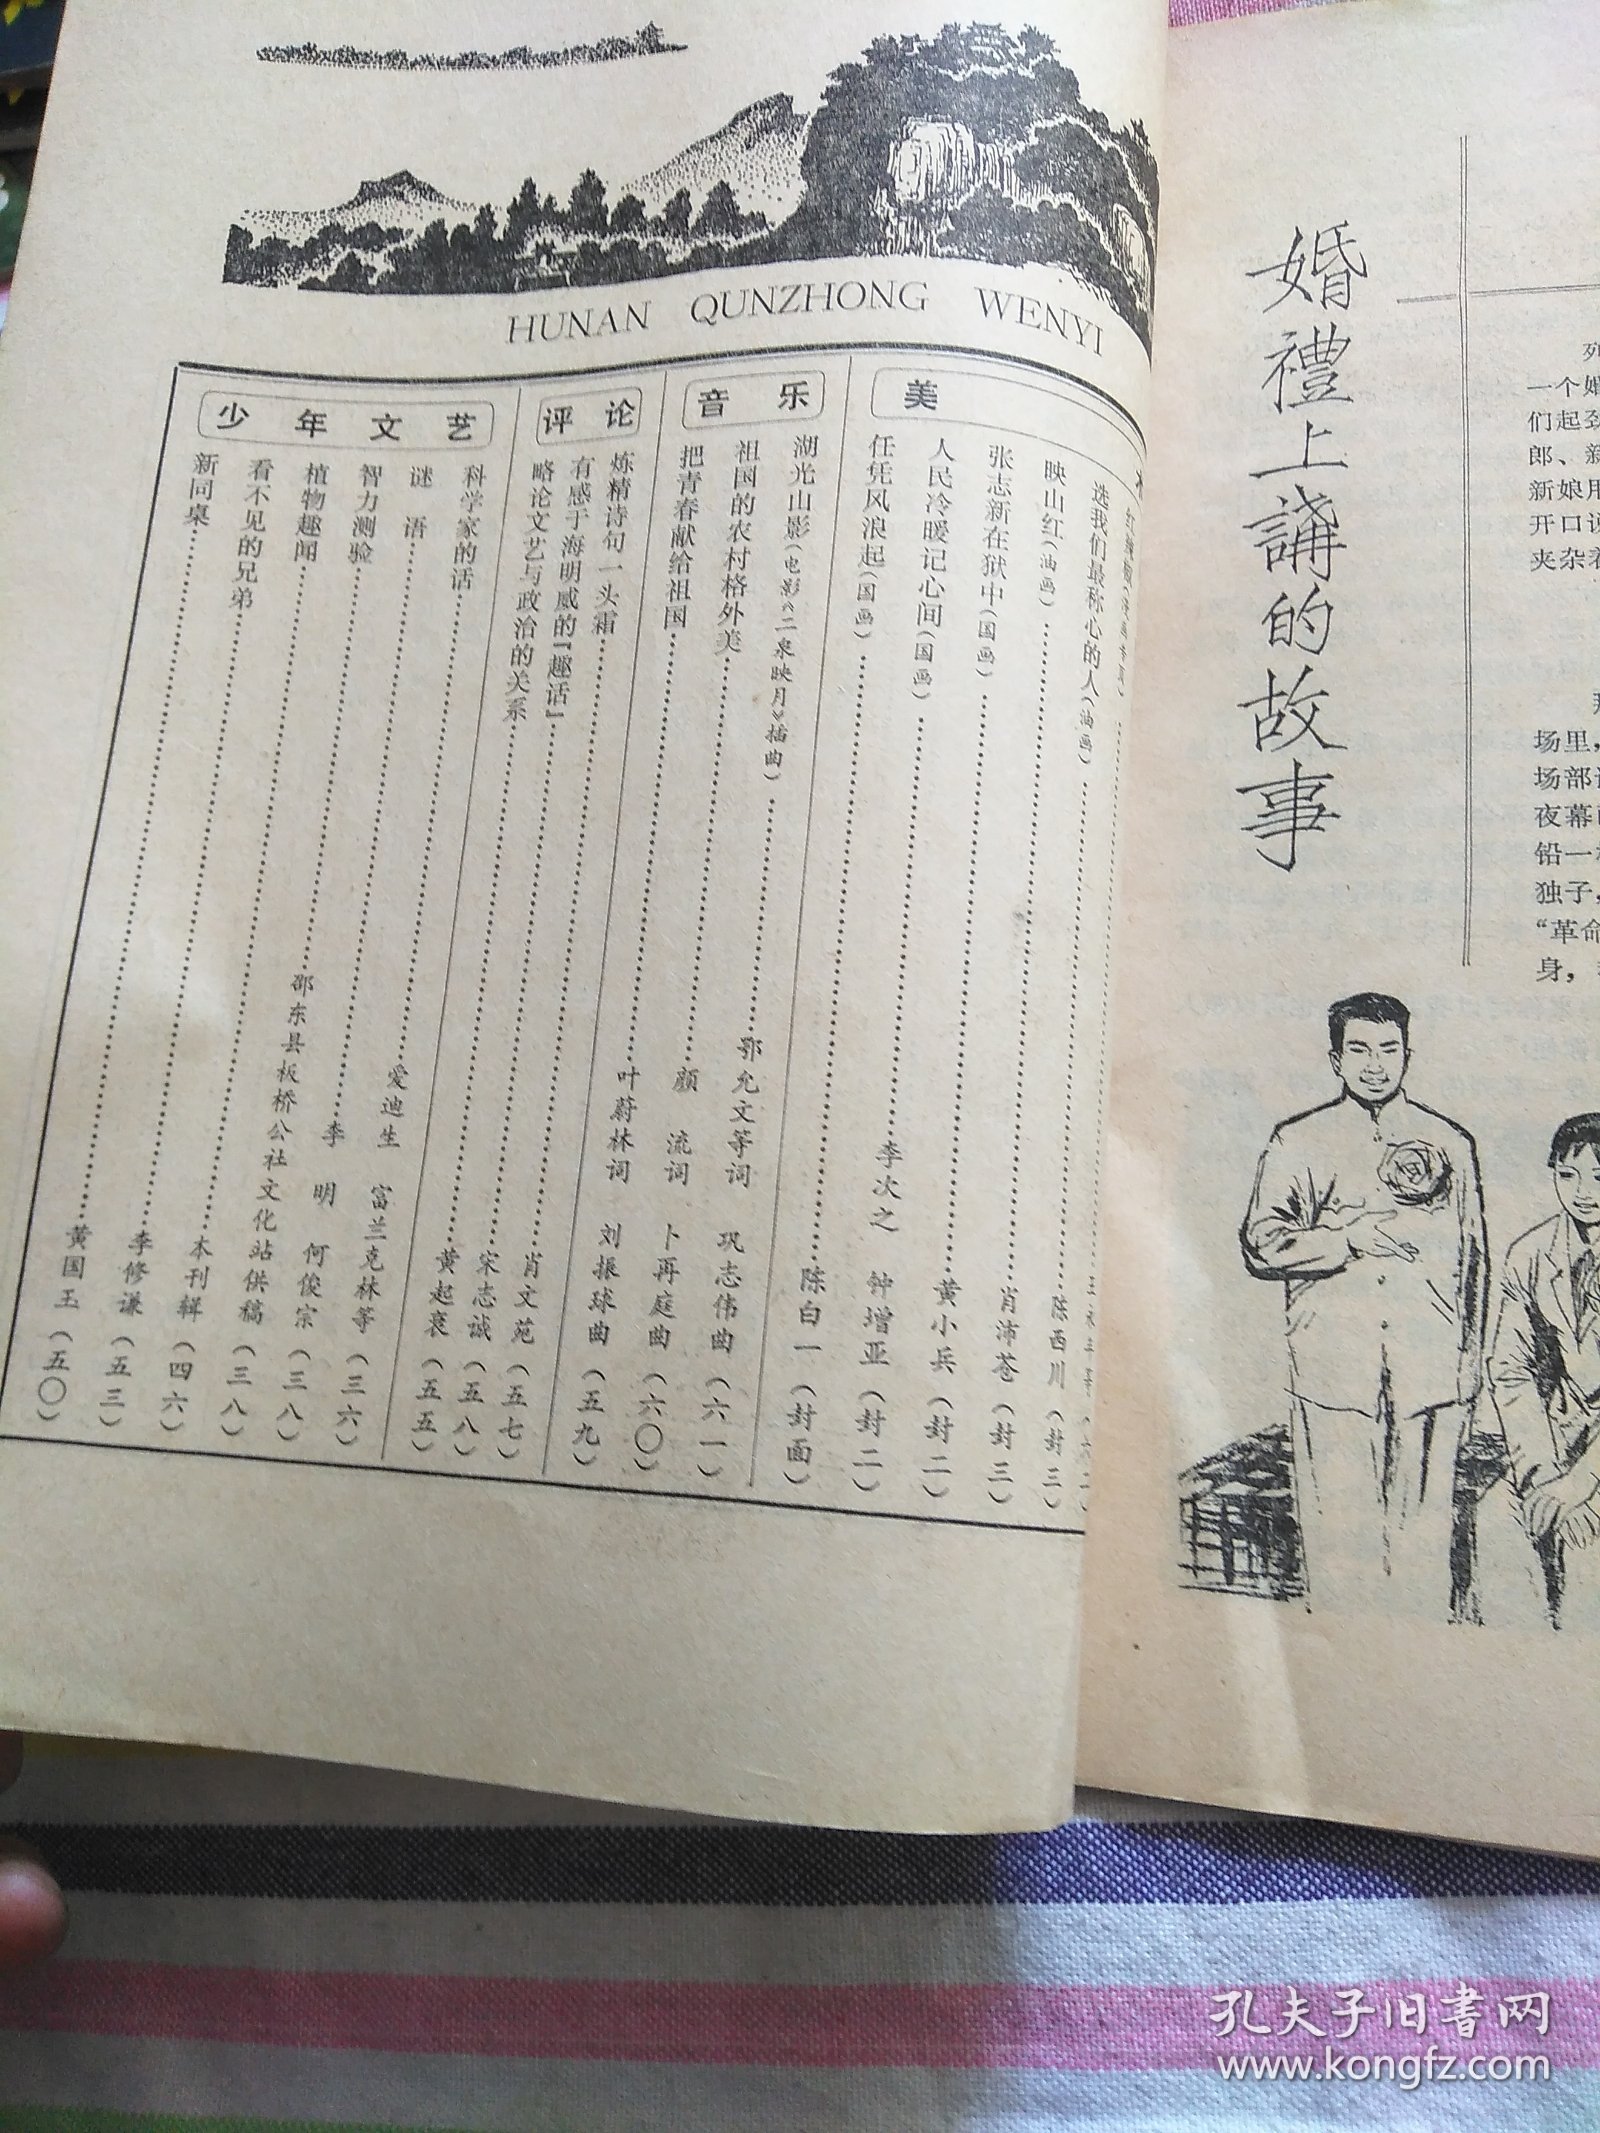 HUNAN QUNZHONG WENYI
美
选我们最称心的人(油画)
映山红(油画) 陈西川(封三)
张志新在狱中(国画) 肖沛苍(封三)
人民冷暖记心间(国画) 黄小兵(封二)
任凭风浪起(国画) 李次之 钟增亚(封二)
陈白一(封面)
音乐
湖光山影(电影《二泉映月》插曲) 鄂允文等词 巩志伟曲(六一)
祖国的农村格外美 颜流词 卜再庭曲(六〇)
把青春献给祖国 叶蔚林词 刘振球曲(五九)
评论
炼精诗句一头霜 肖文苑(五七)
有感于海明威的『趣话』 宋志诚(五八)
略论文艺与政治的关系 黄起衰(五五)
少年文艺
科学家的话 爱迪生 富兰克林等(三六)
谜语 李明 何俊宗(三八)
智力测验 邵东县板桥公社文化站供稿(三八)
植物趣闻 本刊辑(四六)
看不见的兄弟 李修谦(五三)
新同桌 黄国玉(五〇)
婚禮上講的故事
列
一个婚
们起劲
郎、新
新娘用
开口说
夹杂着
场里，
场部
夜幕
铅一
独子，
“革命
身，
孔夫子旧书网
www.kongfz.com